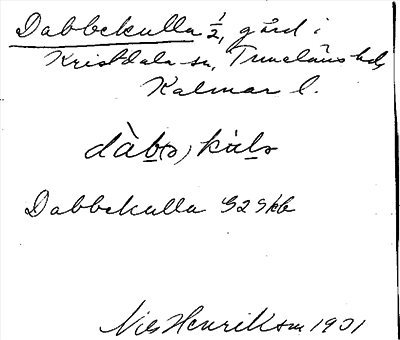 Dabbekulla ½, gård i
Kristdala sn, Tuneläns hd,
Kalmar l.
Dabbekulla
Nils Henriksson 1901